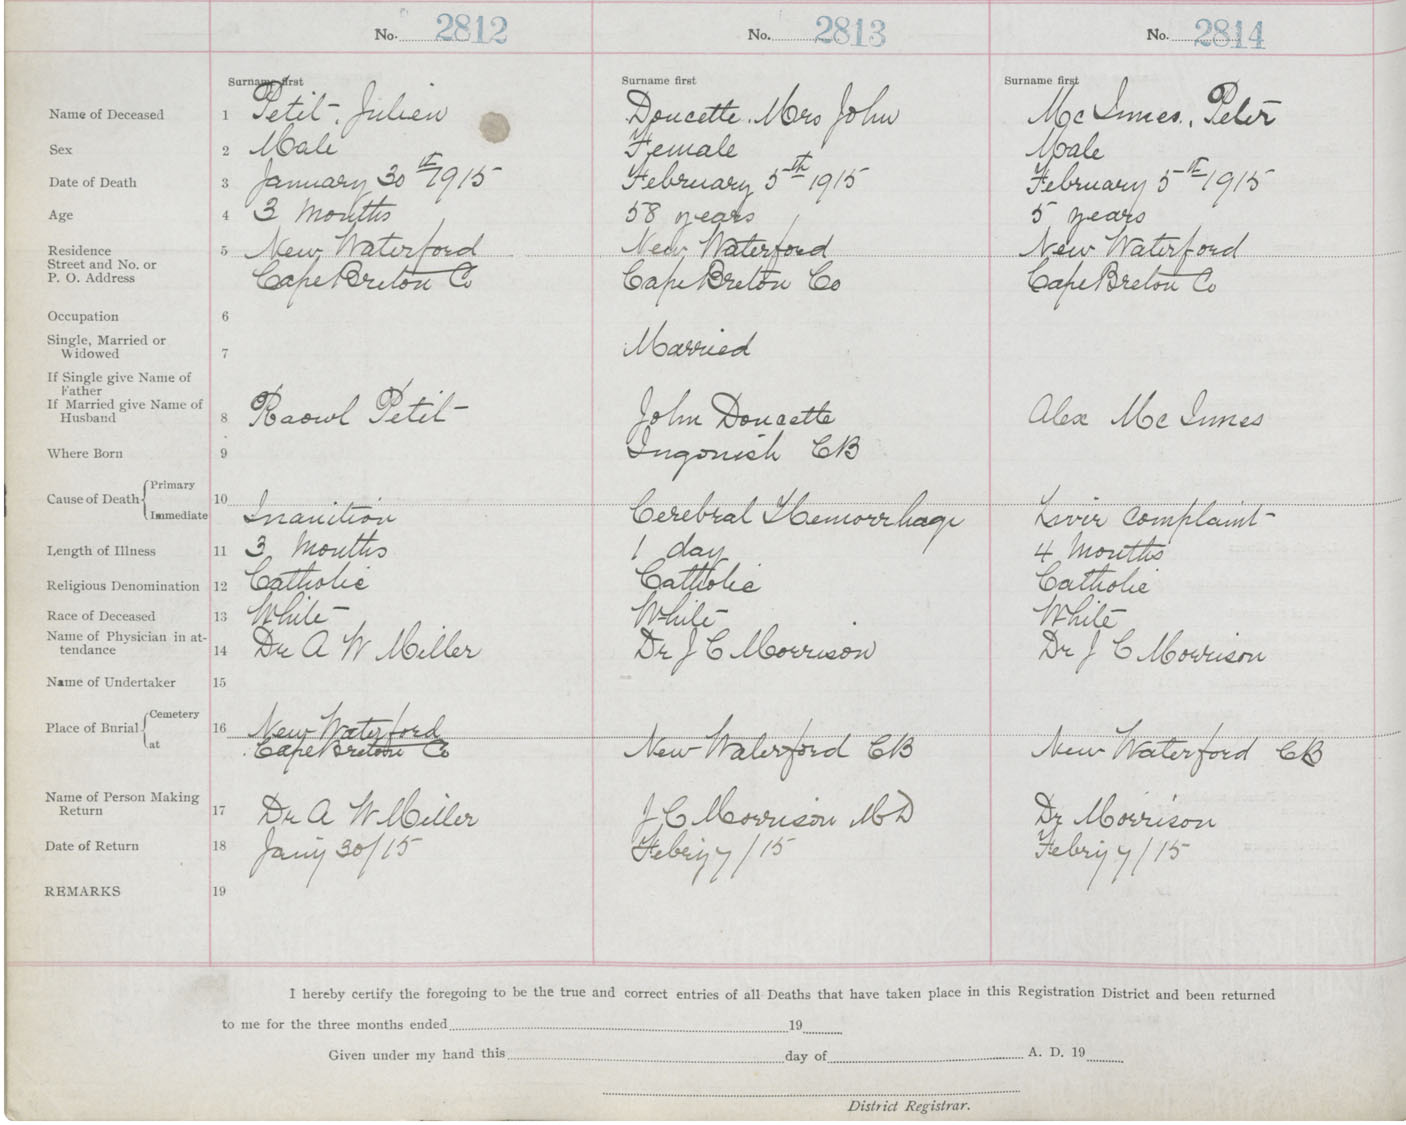 No. 2812 No. 2813 No. 2814
Surname first Surname first Surname first
Name of Deceased 1 Petit, Julien Doucette. Mrs John Mc Innes, Peter
Sex 2 Male Female Male
Date of Death 3 January 30th 1915 February 5th 1915 February 5th 1915
Age 4 3 Months 58 years 5 years
Residence 5 New Waterford New Waterford New Waterford
Street and No. or
P. O. Address Cape Breton Co Cape Breton Co Cape Breton Co
Occupation 6
Single, Married or
Widowed 7 Married
If Single give Name of
Father
If Married give Name of
Husband 8 Raowl Petit John Doucette Alex Mc Innes
Where Born 9 Ingonish CB
Cause of Death Primary 10
Immediate Inanition Cerebral Hemorrhage Liver Complaint
Length of Illness 11 3 Months 1 day 4 Months
Religious Denomination 12 Catholic Catholic Catholic
Race of Deceased 13 White White White
Name of Physician in at-
tendance 14 Dr A W Miller Dr J C Morrison Dr J C Morrison
Name of Undertaker 15
Place of Burial Cemetery 16 New Waterford
at Cape Breton Co New Waterford CB New Waterford CB
Name of Person Making
Return 17 Dr A W Miller J C Morrison MD Dr Morrison
Date of Return 18 Jany 30/15 Febry 7/15 Febry 7/15
REMARKS 19
I hereby certify the foregoing to be the true and correct entries of all Deaths that have taken place in this Registration District and been returned
to me for the three months ended 19
Given under my hand this day of A. D. 19
District Registrar.